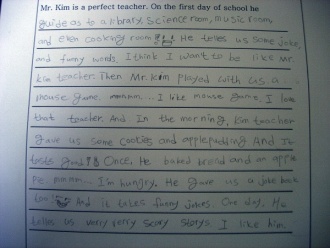 Mr. Kim is a perfect teacher. On the first day of school he
guide as to a library, Science room, music room,
and even cooking room!! He tells us some joke,
and funny words. I think I want to be like Mr.
Kim teacher. Then Mr. Kim played with us a
mouse game. mmmm... I like mouse game. I love
that teacher. And In the morning, Kim teacher
gave us some cookies and applepudding And It
tasts good!! Once, He baked bread and an apple
Pe. mmmm... I'm hungry. He gave us a joke book
too! And it takes funny jokes. One day, He
tells us verry verry scary storys. I like him.